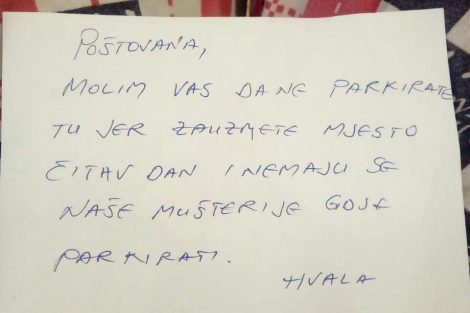 POŠTOVANA,
MOLIM VAS DA NE PARKIRATE
TU JER ZAUZMETE MJESTO
ČITAV DAN I NEMAJU SE
NAŠE MUŠTERIJE GDJE
PARKIRATI.
HVALA